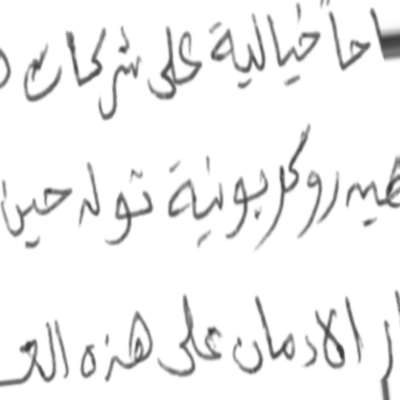 احا خيالية على شركات
هيدروكربونية تولد حين
الادمان على هذه